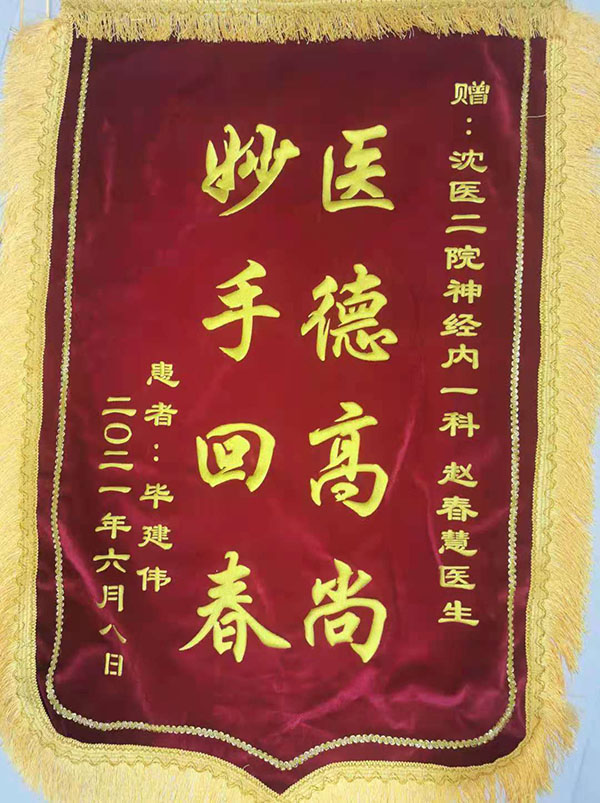 赠：沈医二院神经内一科 赵春慧医生
医德高尚
妙手回春
患者：毕建伟
二〇二一年六月八日